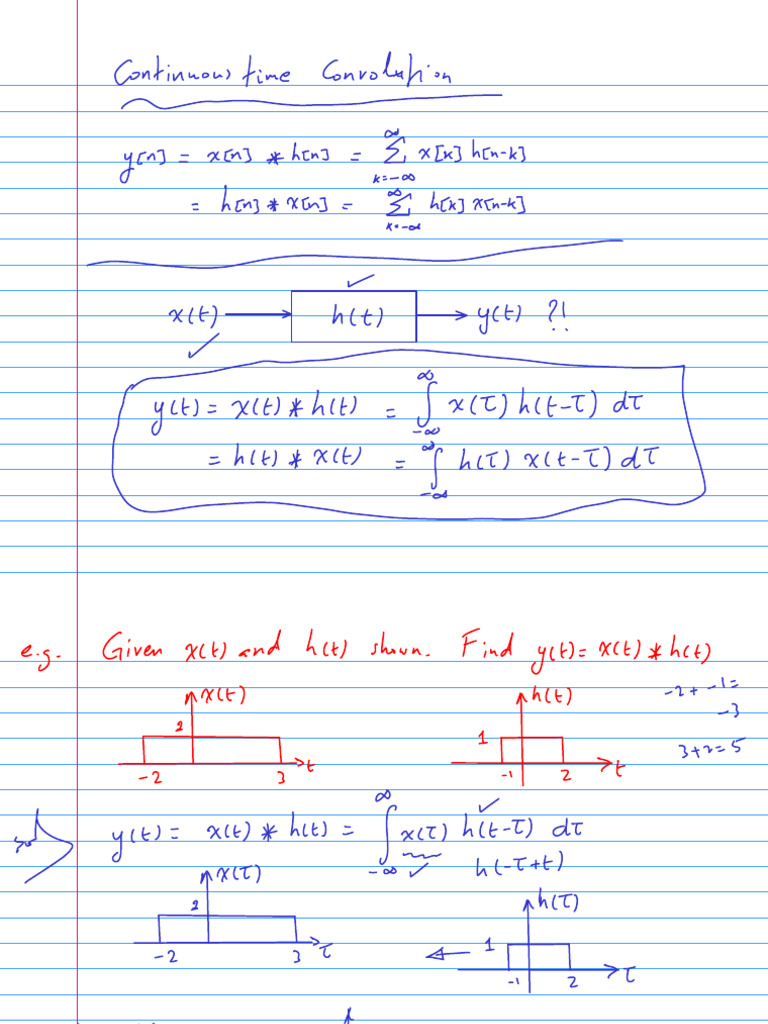 Continuous time Convolution
y[n] = x[n] * h[n] = ∞ Σ k=-∞ x[k] h[n-k]
= h[n] * x[n] = ∞ Σ k=-∞ h[k] x[n-k]
x(t) → h(t) → y(t) ?!
y(t) = x(t) * h(t) = ∫ ∞ -∞ x(τ) h(t-τ) dτ
= h(t) * x(t) = ∫ ∞ -∞ h(τ) x(t-τ) dτ
e.g. Given x(t) and h(t) shown. Find y(t) = x(t) * h(t)
x(t) 2 -2 3 t
h(t) 1 -1 2 t
-2 + -1 =
-3
3+2=5
y(t) = x(t) * h(t) = ∫ ∞ -∞ x(τ) h(t-τ) dτ
h(-τ+t)
x(τ) 2 -2 3 τ
h(τ) 1 -1 2 τ